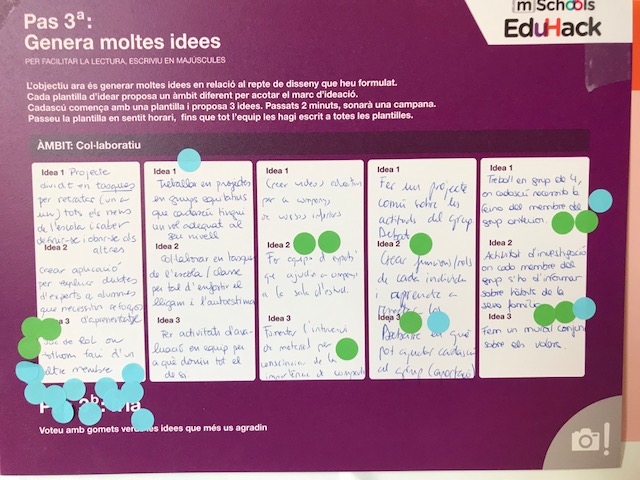 [m]Schools
EduHack
Pas 3ª:
Genera moltes idees
PER FACILITAR LA LECTURA, ESCRIVIU EN MAJÚSCULES
L'objectiu ara és generar moltes idees en relació al repte de disseny que heu formulat.
Cada plantilla d'idear proposa un àmbit diferent per acotar el marc d'ideació.
Cadascú comença amb una plantilla i proposa 3 idees. Passats 2 minuts, sonarà una campana.
Passeu la plantilla en sentit horari, fins que tot l'equip les hagi escrit a totes les plantilles.
ÀMBIT: Col·laboratiu
Idea 1 Projecte
dividit en tasques
per retratar (un a
un) tots els nens
de l'escola i saber
definir-se i obrir-se als
altres
Idea 2
Crear aplicació
per replicar dubtes
d'experts a alumnes
que necessitin reforços
d'aprenentatge
Idea 3
Joc de Rol on
tothom faci d'un
altre membre
Idea 1
Treballar en projectes
en grups equitatius
que cadascú tingui
un rol adequat al
seu nivell
Idea 2
Col·laborar en tasques
de l'escola / classe
per tal d'enfortir el
lligam i l'autoestima
Idea 3
Per activitats d'ava-
luació en equip per
a què donin tot el
de sí
Idea 1
Crear videos educatius
per a companys
de cursos inferiors
Idea 2
Fer equips d'
que ajudin a companys
a la sala d'estudi.
Idea 3
Fomentar l'intercanvi
de material per
conscienciar de la
importància de compartir
Idea 1
Fer un projecte
comú sobre les
actituds del grup
Debat
Idea 2
Crear funcions/rols
de cada individu
i aprendre a
Idea 3
Debatre en què
pot ajudar cadascú
al grup (aportació)
Idea 1
Treball en grup de 4,
on cadascú necessita la
feina del membre del
grup anterior.
Idea 2
Activitat d'investigació
on cada membre del
grup s'ha d'informar
sobre hàbits de la
seva família
Idea 3
Fem un mural conjunt
sobre els valors.
Voteu amb gomets verds les idees que més us agradin